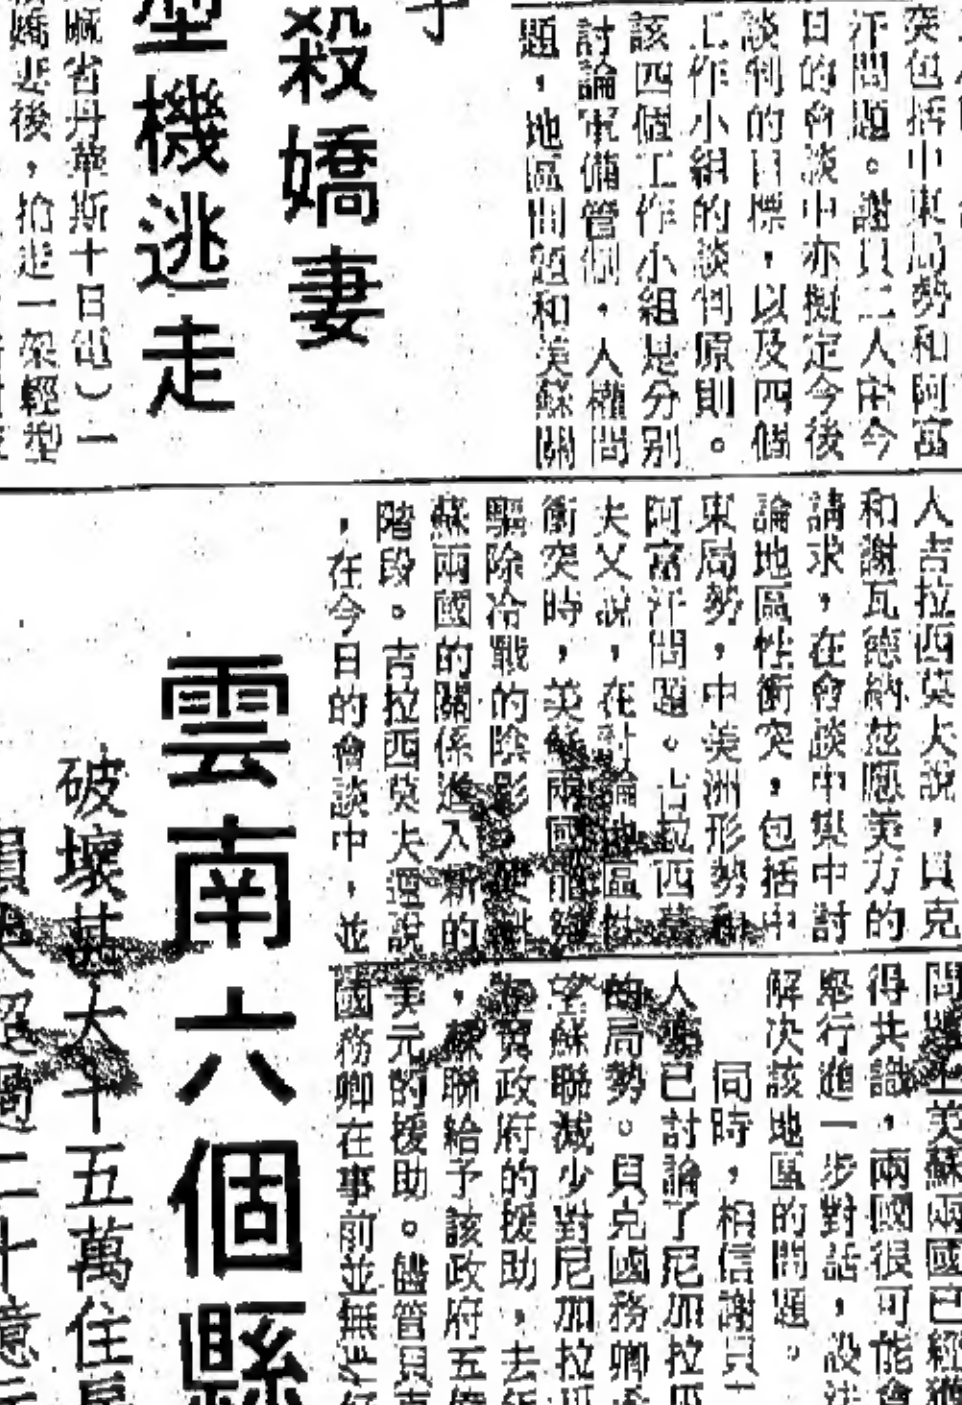 突包括中東局勢和阿富
汗問題。謝貝二人在今
日的會談中亦擬定今後
談判的目標，以及四個
工作小組的談判原則。
該四個工作小組是分別
討論軍備管制，人權問
題，地區問題和美蘇關
殺嬌妻
型機逃走
省丹華斯十日電）一
嬌妻後，搶走一架輕型
人吉拉西莫夫說，貝克
和謝瓦德納茲應美方的
請求，在會談中集中討
論地區性衝突，包括中
東局勢，中美洲形勢和
阿富汗問題。吉拉西莫
夫又說，在討論地區性
衝突時，美蘇兩國能夠
驅除冷戰的陰影，使美
蘇兩國的關係進入新的
階段。吉拉西莫夫還說
，在今日的會談中，並
美蘇兩國已經獲
得共識，兩國很可能會
舉行進一步對話，設法
解決該地區的問題。
同時，相信謝貝
人已討論了尼加拉瓜
的局勢。貝克國務卿希
望蘇聯減少對尼加拉瓜
政府的援助，去年
，蘇聯給予該政府五億
美元的援助。儘管貝克
國務卿在事前並無準備
雲南六個縣
破壞甚大 十五萬住房
損失超過二十億元